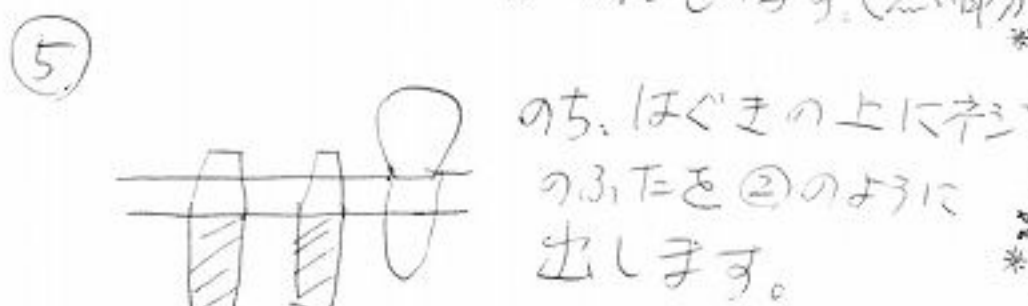 ⑤
のち、はぐきの上にネジ
のふたを②のように
出します。